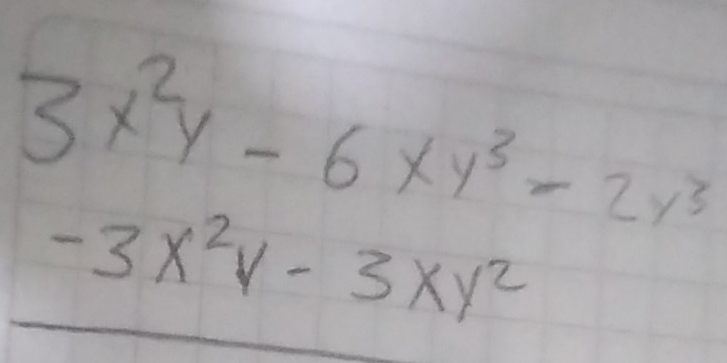 3x²y - 6xy³ - 2y³
-3x²y - 3xy²